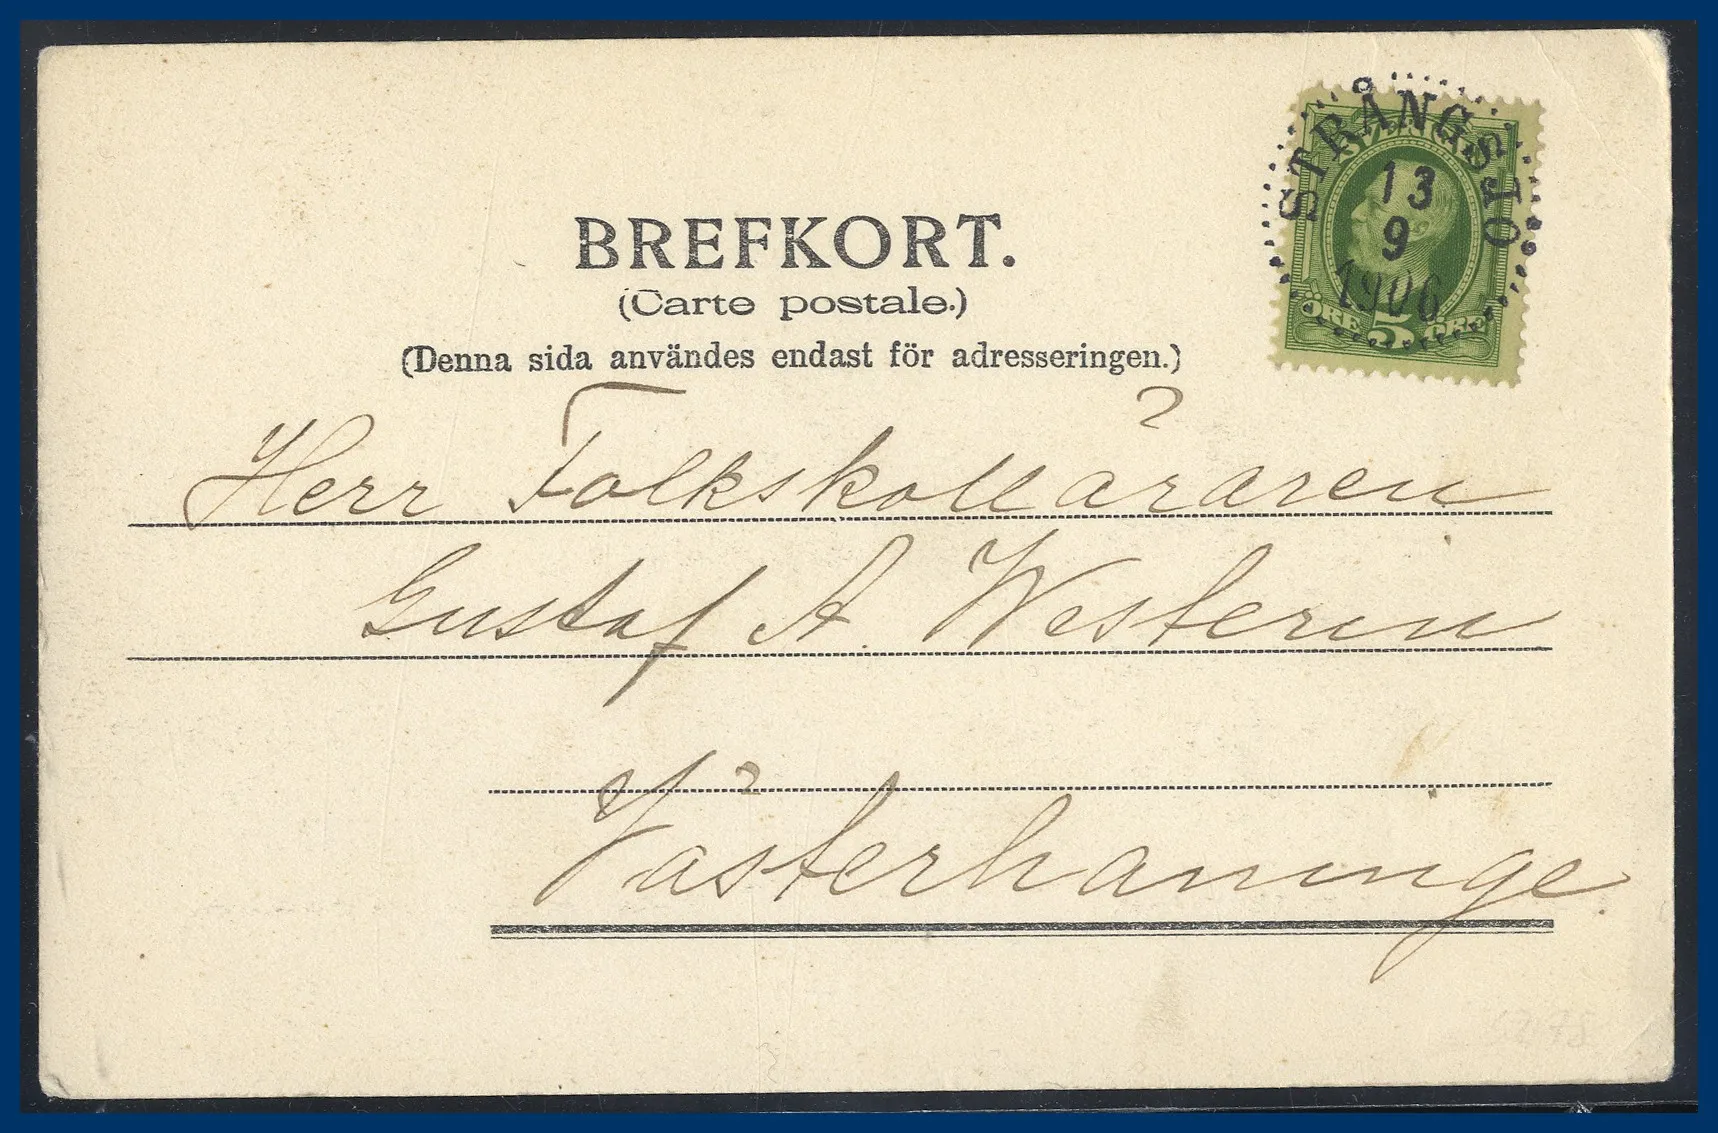 BREFKORT.
(Carte postale.)
(Denna sida användes endast för adresseringen.)
STRÅNGSJÖ
13
9
1906
ÖRE 5 ÖRE
Herr Folkskolläraren
Gustaf A. Westerin
Västerhaninge.